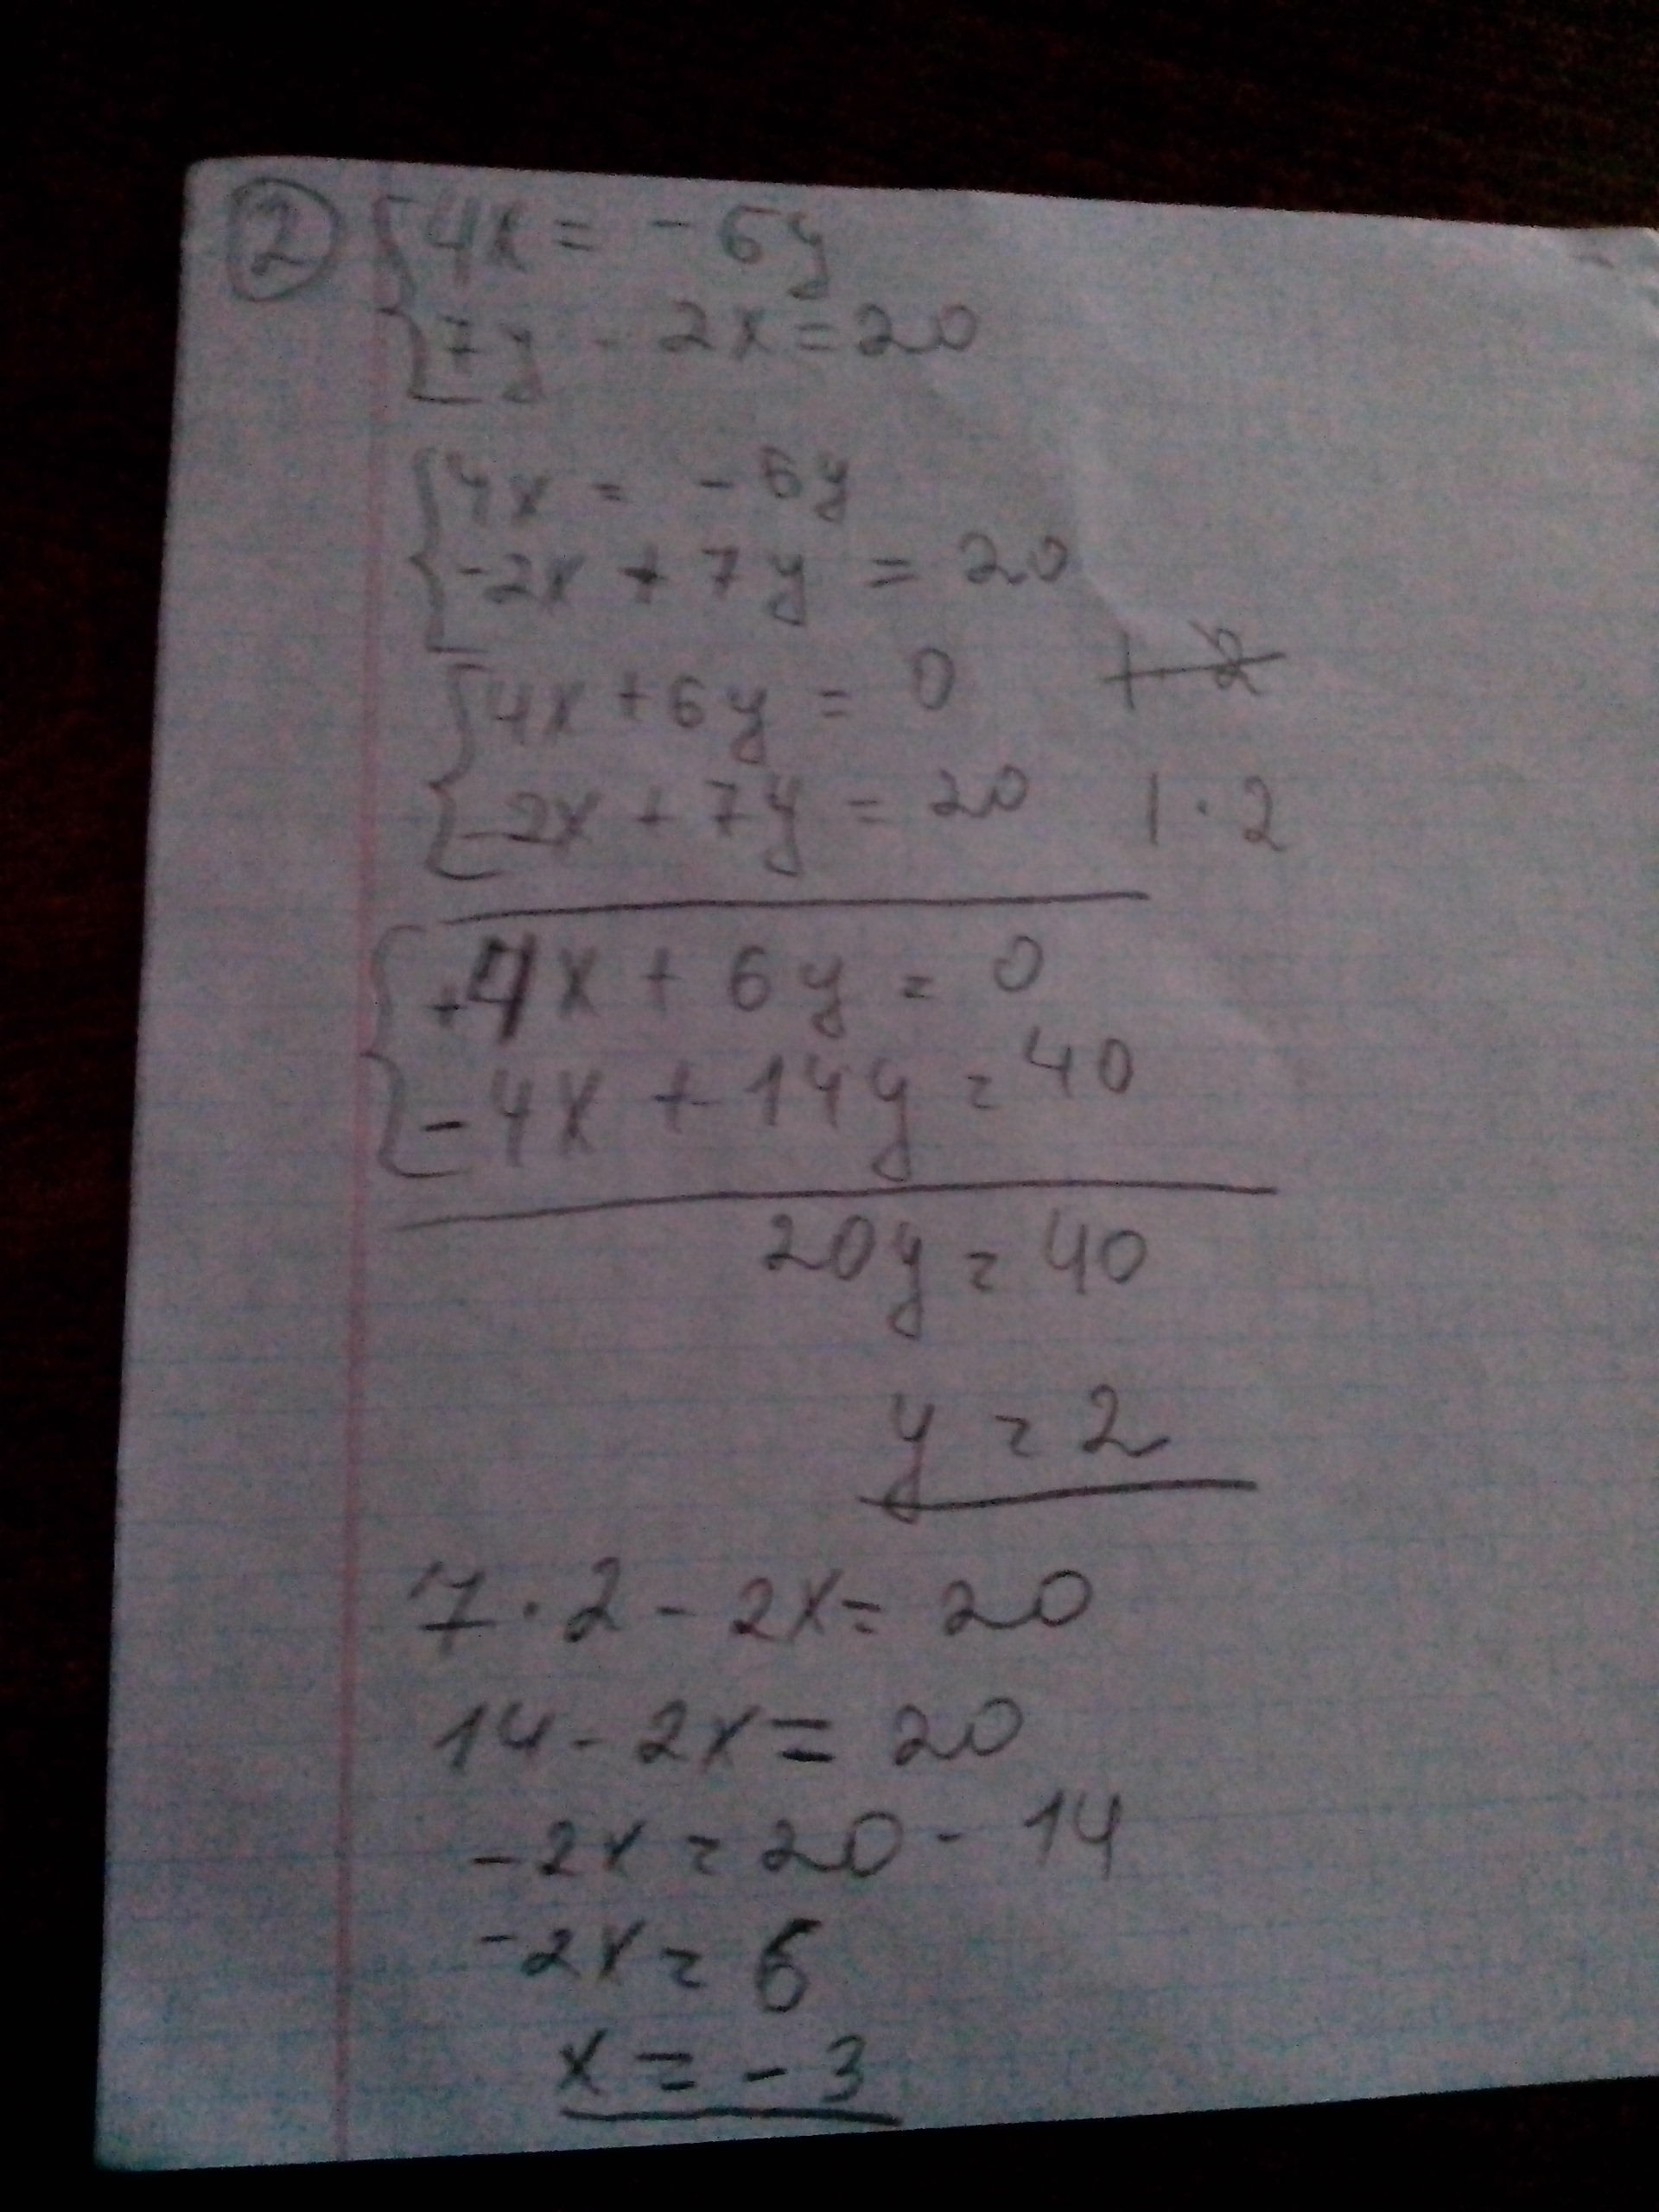 ② { 4x = -6y
7y - 2x = 20
{ 4x = -6y
-2x + 7y = 20
{ 4x + 6y = 0
-2x + 7y = 20 | · 2
{ +4x + 6y = 0
-4x + 14y = 40
20y = 40
y = 2
7 · 2 - 2x = 20
14 - 2x = 20
-2x = 20 - 14
-2x = 6
x = -3